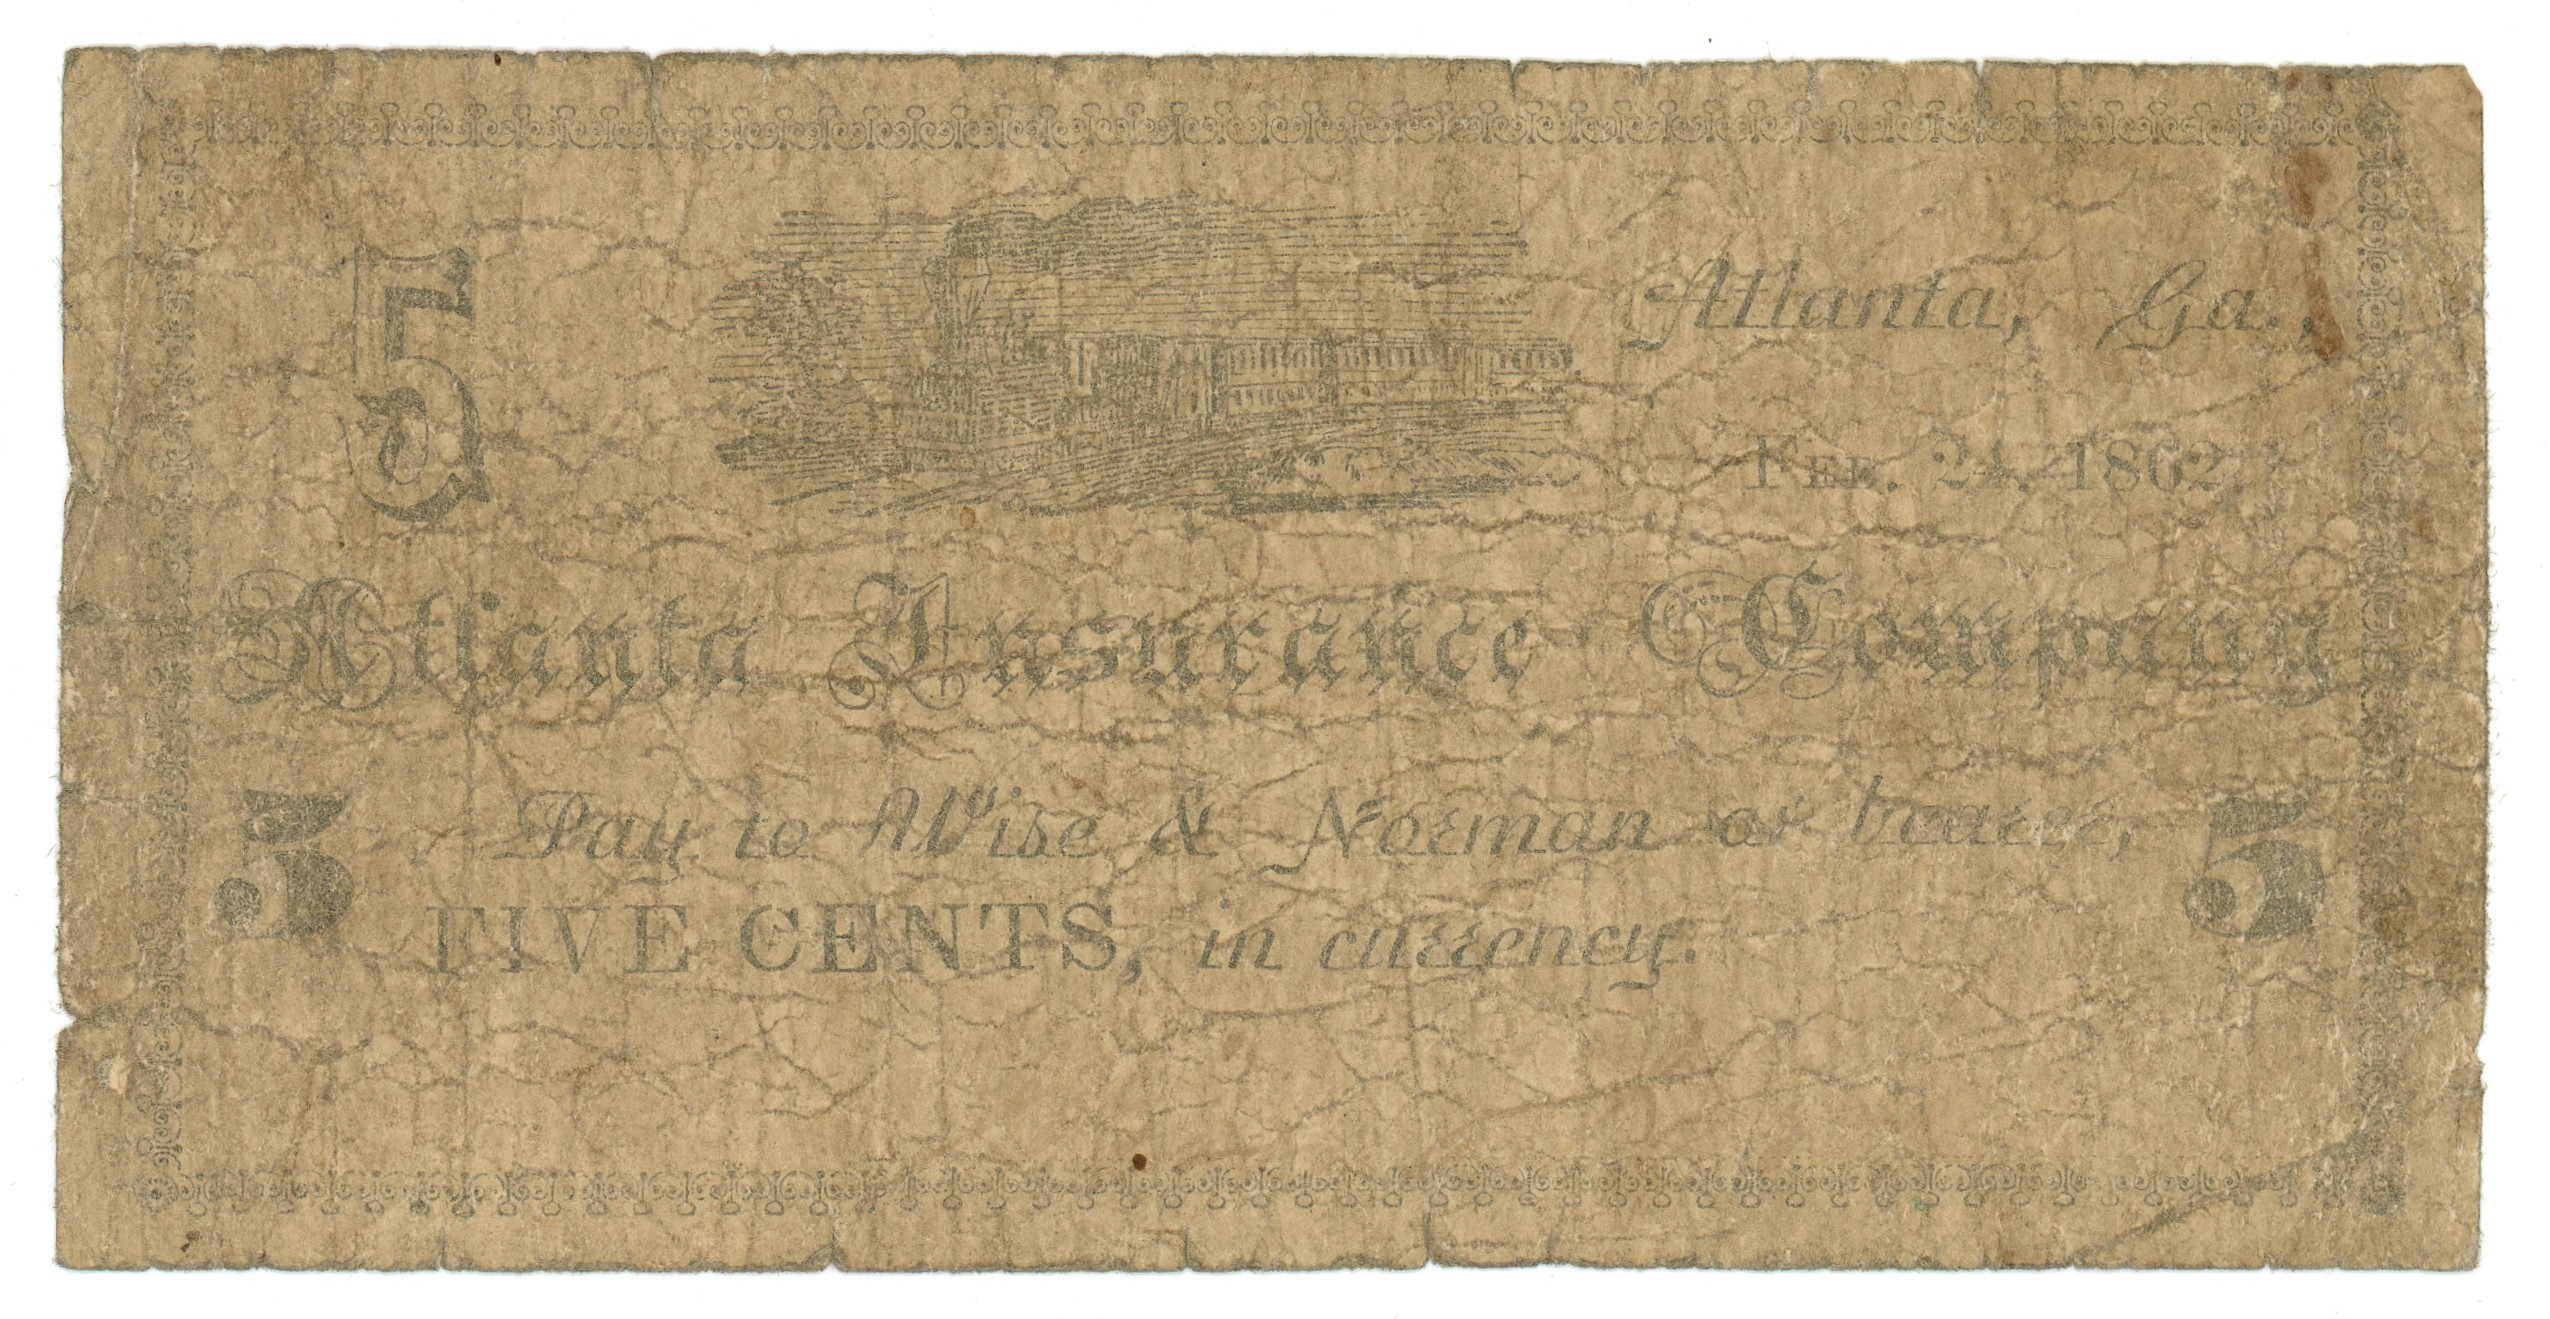 5
Atlanta, Ga.,
FEB. 24, 1862.
Atlanta Insurance Company
Pay to Wise & Norman or bearer,
5 FIVE CENTS, in currency. 5